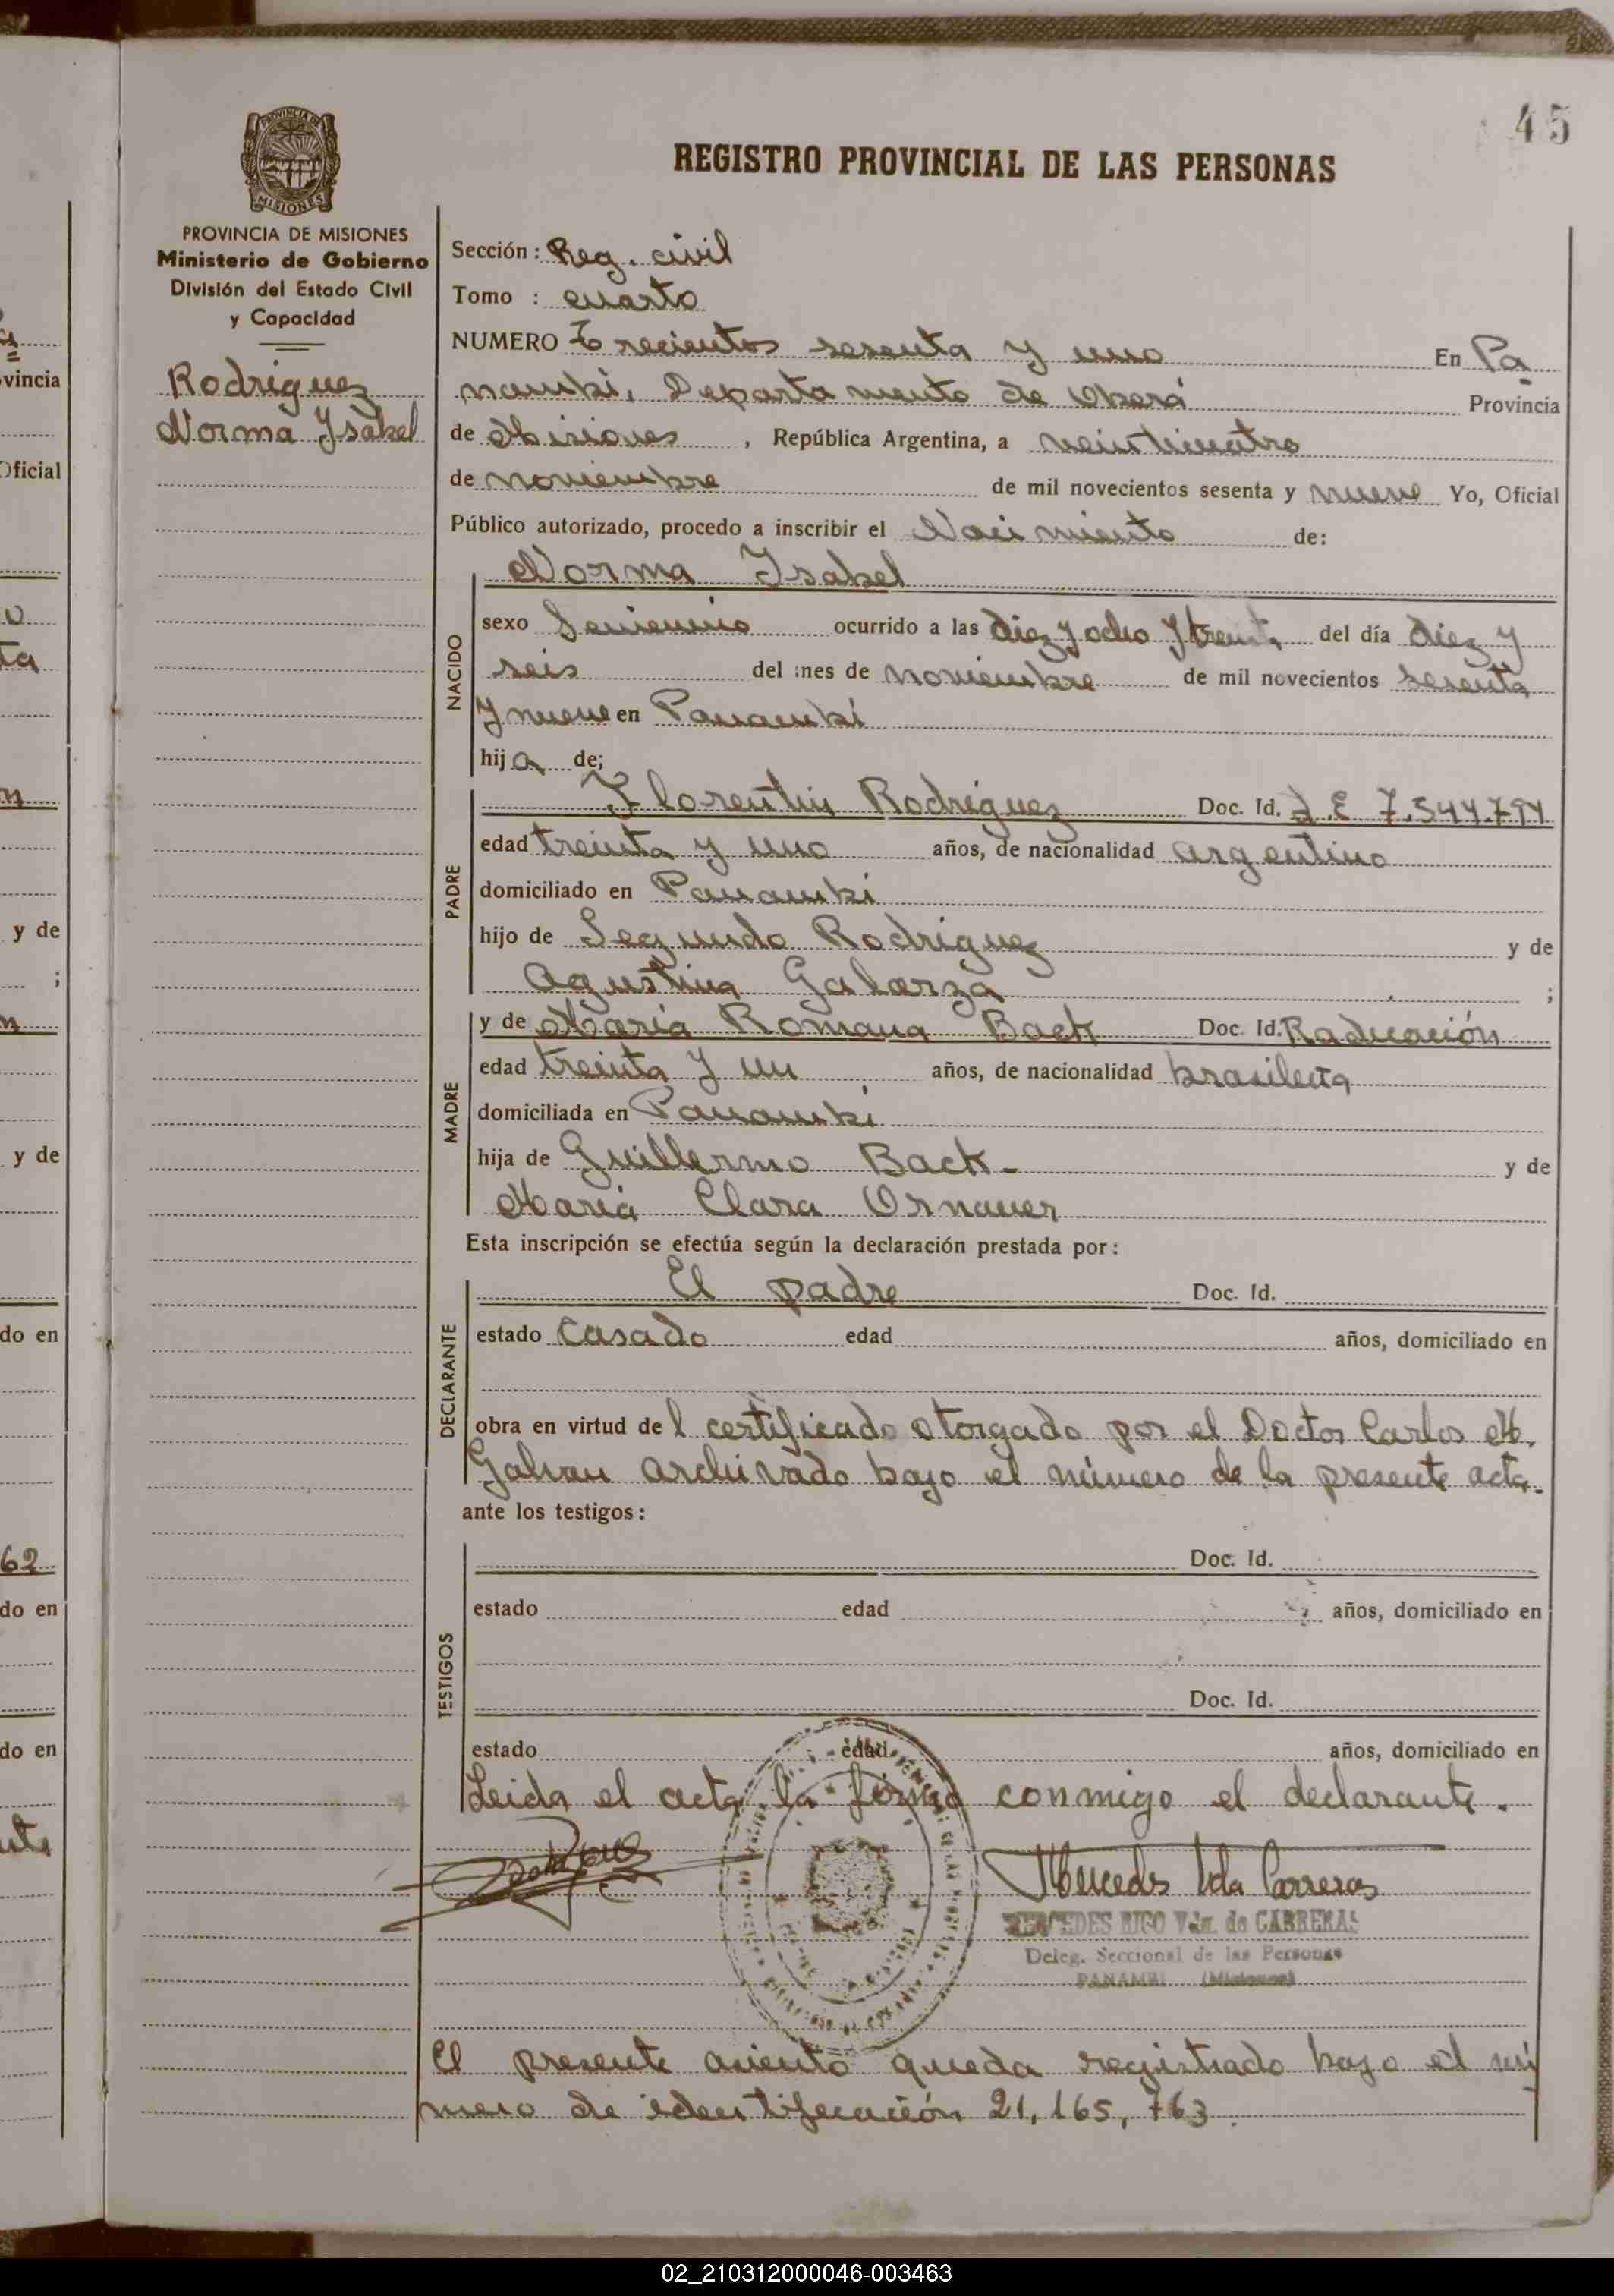 45
PROVINCIA DE
MISIONES
REGISTRO PROVINCIAL DE LAS PERSONAS
PROVINCIA DE MISIONES
Ministerio de Gobierno
División del Estado Civil
y Capacidad
Rodriguez
Norma Ysabel
Sección: Reg. civil
Tomo : cuarto
NUMERO Trecientos sesenta y uno En Pa
nambí, Departamento de Oberá Provincia
de Misiones, República Argentina, a veinticuatro
de noviembre de mil novecientos sesenta y nueve Yo, Oficial
Público autorizado, procedo a inscribir el Nacimiento de:
Norma Ysabel
NACIDO
sexo femenino ocurrido a las diez y ocho y treinta del día diez y
seis del mes de noviembre de mil novecientos sesenta
y nueve en Panambí
hija de;
PADRE
Florentin Rodriguez Doc. Id. L.E 7.544.794
edad treinta y uno años, de nacionalidad argentino
domiciliado en Panambí
hijo de Segundo Rodriguez y de
Agustina Galarza ;
MADRE
y de María Romana Back Doc. Id. Radicación
edad treinta y un años, de nacionalidad brasileña
domiciliada en Panambí
hija de Guillermo Back- y de
María Clara Ornauer
Esta inscripción se efectúa según la declaración prestada por:
DECLARANTE
El padre Doc. Id.
estado casado edad años, domiciliado en
obra en virtud del certificado otorgado por el Doctor Carlos M.
Galvan archivado bajo el número de la presente acta.
ante los testigos:
TESTIGOS
Doc. Id.
estado edad años, domiciliado en
Doc. Id.
estado edad años, domiciliado en
Leida el acta la firma conmigo el declarante.
Mercedes Carreras
MERCEDES RICO Vda. de CARRERAS
Deleg. Seccional de las Personas
PANAMBI (Misiones)
El presente asiento queda registrado bajo el nú
mero de identificación 21,165,763.
vincia
Oficial
y de
;
y de
do en
62
do en
do en
02_210312000046-003463